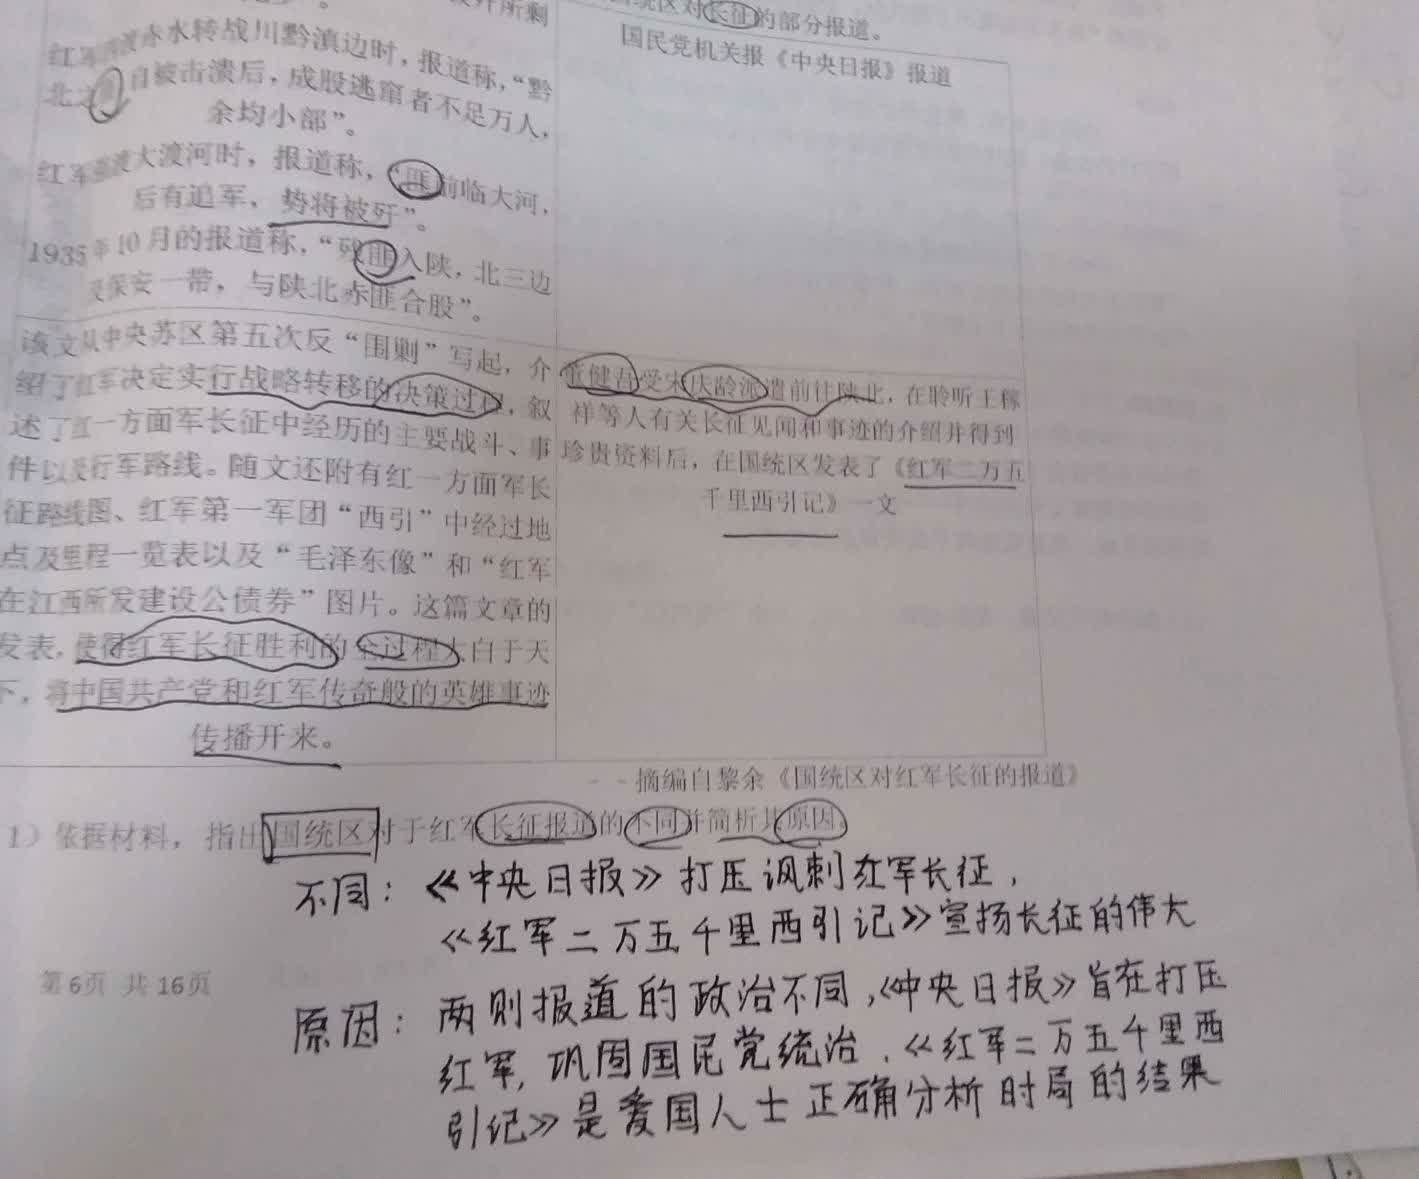 国统区对长征的部分报道。
国民党机关报《中央日报》报道
红军四渡赤水转战川黔滇边时，报道称，“黔
北之匪自被击溃后，成股逃窜者不足万人，
余均小部”。
红军强渡大渡河时，报道称，“匪前临大河，
后有追军，势将被歼”。
1935年10月的报道称，“残匪入陕，北三边
及保安一带，与陕北赤匪合股”。
该文从中央苏区第五次反“围剿”写起，介
绍了红军决定实行战略转移的决策过程，叙
述了红一方面军长征中经历的主要战斗、事
件以及行军路线。随文还附有红一方面军长
征路线图、红军第一军团“西引”中经过地
点及里程一览表以及“毛泽东像”和“红军
在江西所发建设公债券”图片。这篇文章的
发表，使得红军长征胜利的全过程大白于天
下，将中国共产党和红军传奇般的英雄事迹
传播开来。
董健吾受宋庆龄派遣前往陕北，在聆听王稼
祥等人有关长征见闻和事迹的介绍并得到
珍贵资料后，在国统区发表了《红军二万五
千里西引记》一文
--摘编自黎余《国统区对红军长征的报道》
1）依据材料，指出国统区对于红军长征报道的不同并简析其原因
不同：《中央日报》打压讽刺红军长征，
《红军二万五千里西引记》宣扬长征的伟大
第6页 共16页
原因：两则报道的政治不同，《中央日报》旨在打压
红军，巩固国民党统治，《红军二万五千里西
引记》是爱国人士正确分析时局的结果